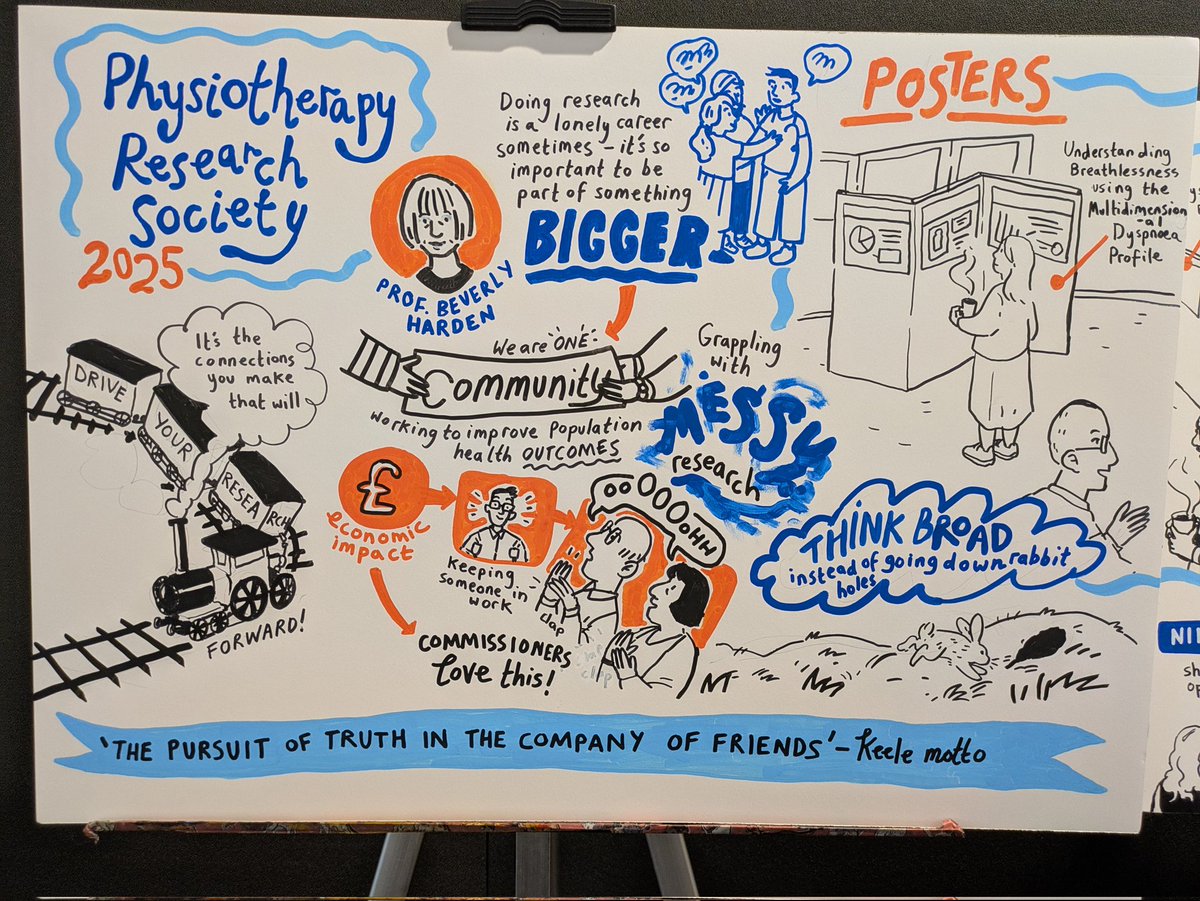 Physiotherapy
Research
Society
2025
PROF. BEVERLY
HARDEN
Doing research
is a lonely career
sometimes – it's so
important to be
part of something
BIGGER
POSTERS
Understanding
Breathlessness
using the
Multidimension
-al
Dyspnoea
Profile
It's the
connections
you make
that will
DRIVE
YOUR
RESEA
RCH
FORWARD!
We are ONE
Community
working to improve population
health OUTCOMES
Grappling
with
MESSY
research
£
economic
impact
Keeping
someone in
work
ooOOOOHW
clap
clap
COMMISSIONERS
love this!
THINK BROAD
instead of going down rabbit
holes
'THE PURSUIT OF TRUTH IN THE COMPANY OF FRIENDS' – Keele motto